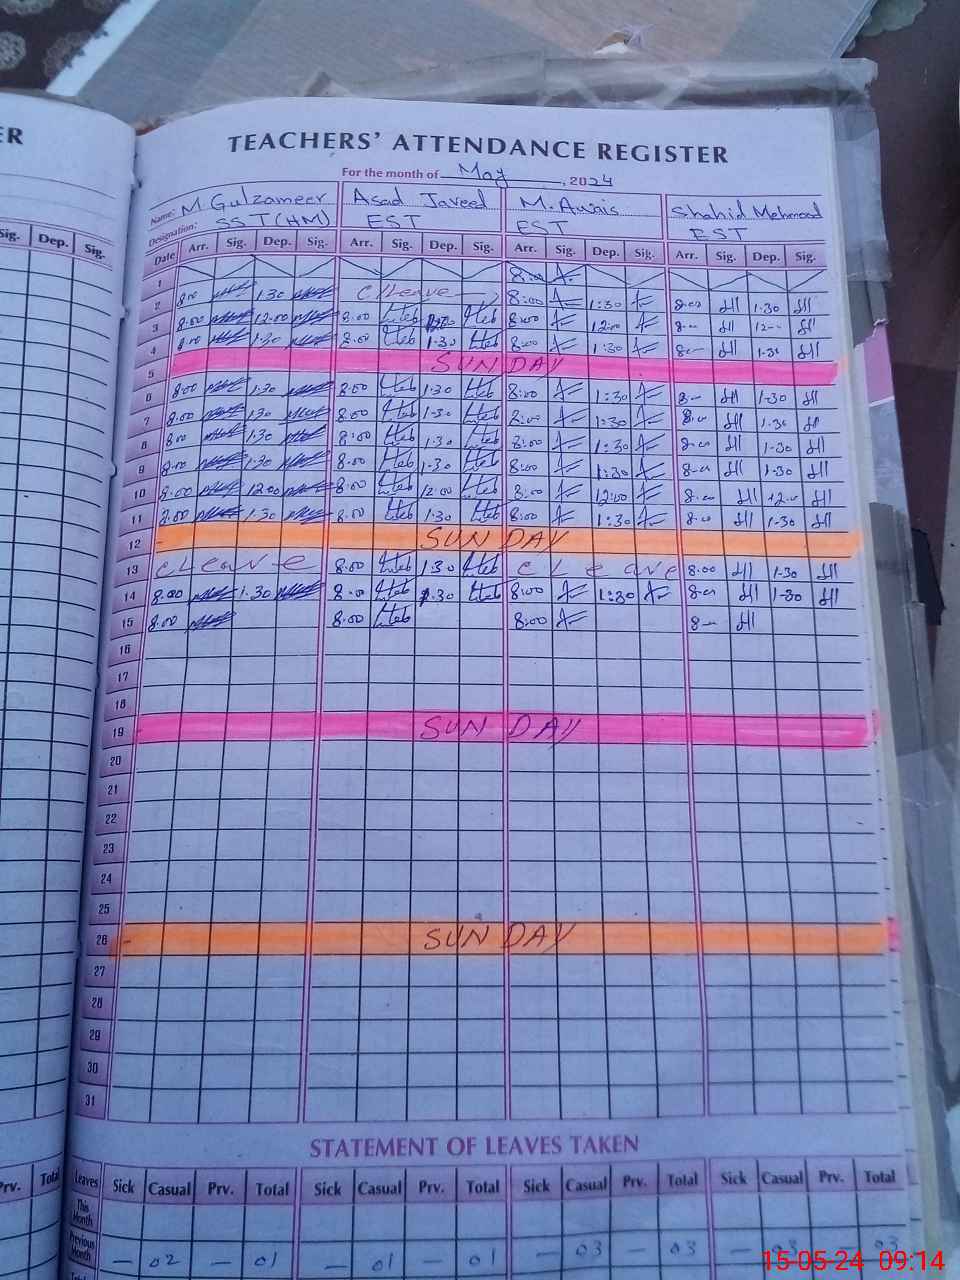 ER
TEACHERS' ATTENDANCE REGISTER
For the month of May, 2024
Name: M Gulzameer Asad Javeed M. Awais Shahid Mehmood
Designation: SST (HM) EST EST EST
Sig. Dep. Sig. Date Arr. Sig. Dep. Sig. Arr. Sig. Dep. Sig. Arr. Sig. Dep. Sig. Arr. Sig. Dep. Sig.
1 8:00
2 8:00 1:30 C Leave 8:00 1:30 8:00 1-30
3 8:00 12:00 8:00 8:00 12:00 8-00 12--
4 8:00 1:30 8:00 1-30 8:00 1:30 8- 1-30
5 SUNDAY
6 8:00 1:30 8:00 1-30 8:00 1:30 8- 1-30
7 8:00 130 8:00 1-30 8:00 1:30 8-00 1-30
8 8:00 1:30 8:00 1-30 8:00 1:30 8-00 1-30
9 8:00 1:30 8:00 1-30 8:00 1:30 8-00 1-30
10 8:00 12:00 8:00 12:00 8:00 12:00 8-00 12-0
11 8:00 1:30 8:00 1-30 8:00 1:30 8-00 1-30
12 SUNDAY
13 c Leave 8:00 1:30 c Leave 8:00 1-30
14 8:00 1:30 8:00 1.30 8:00 1:30 8-00 1-30
15 8:00 8:00 8:00 8-
16
17
18
19 SUNDAY
20
21
22
23
24
25
26 SUNDAY
27
28
29
30
31
STATEMENT OF LEAVES TAKEN
Prv. Total Leaves Sick Casual Prv. Total Sick Casual Prv. Total Sick Casual Prv. Total Sick Casual Prv. Total
This Month
Previous Month — 02 — 01 — 01 — 01 — 03 — 03 — 03 — 03
15-05-24 09:14